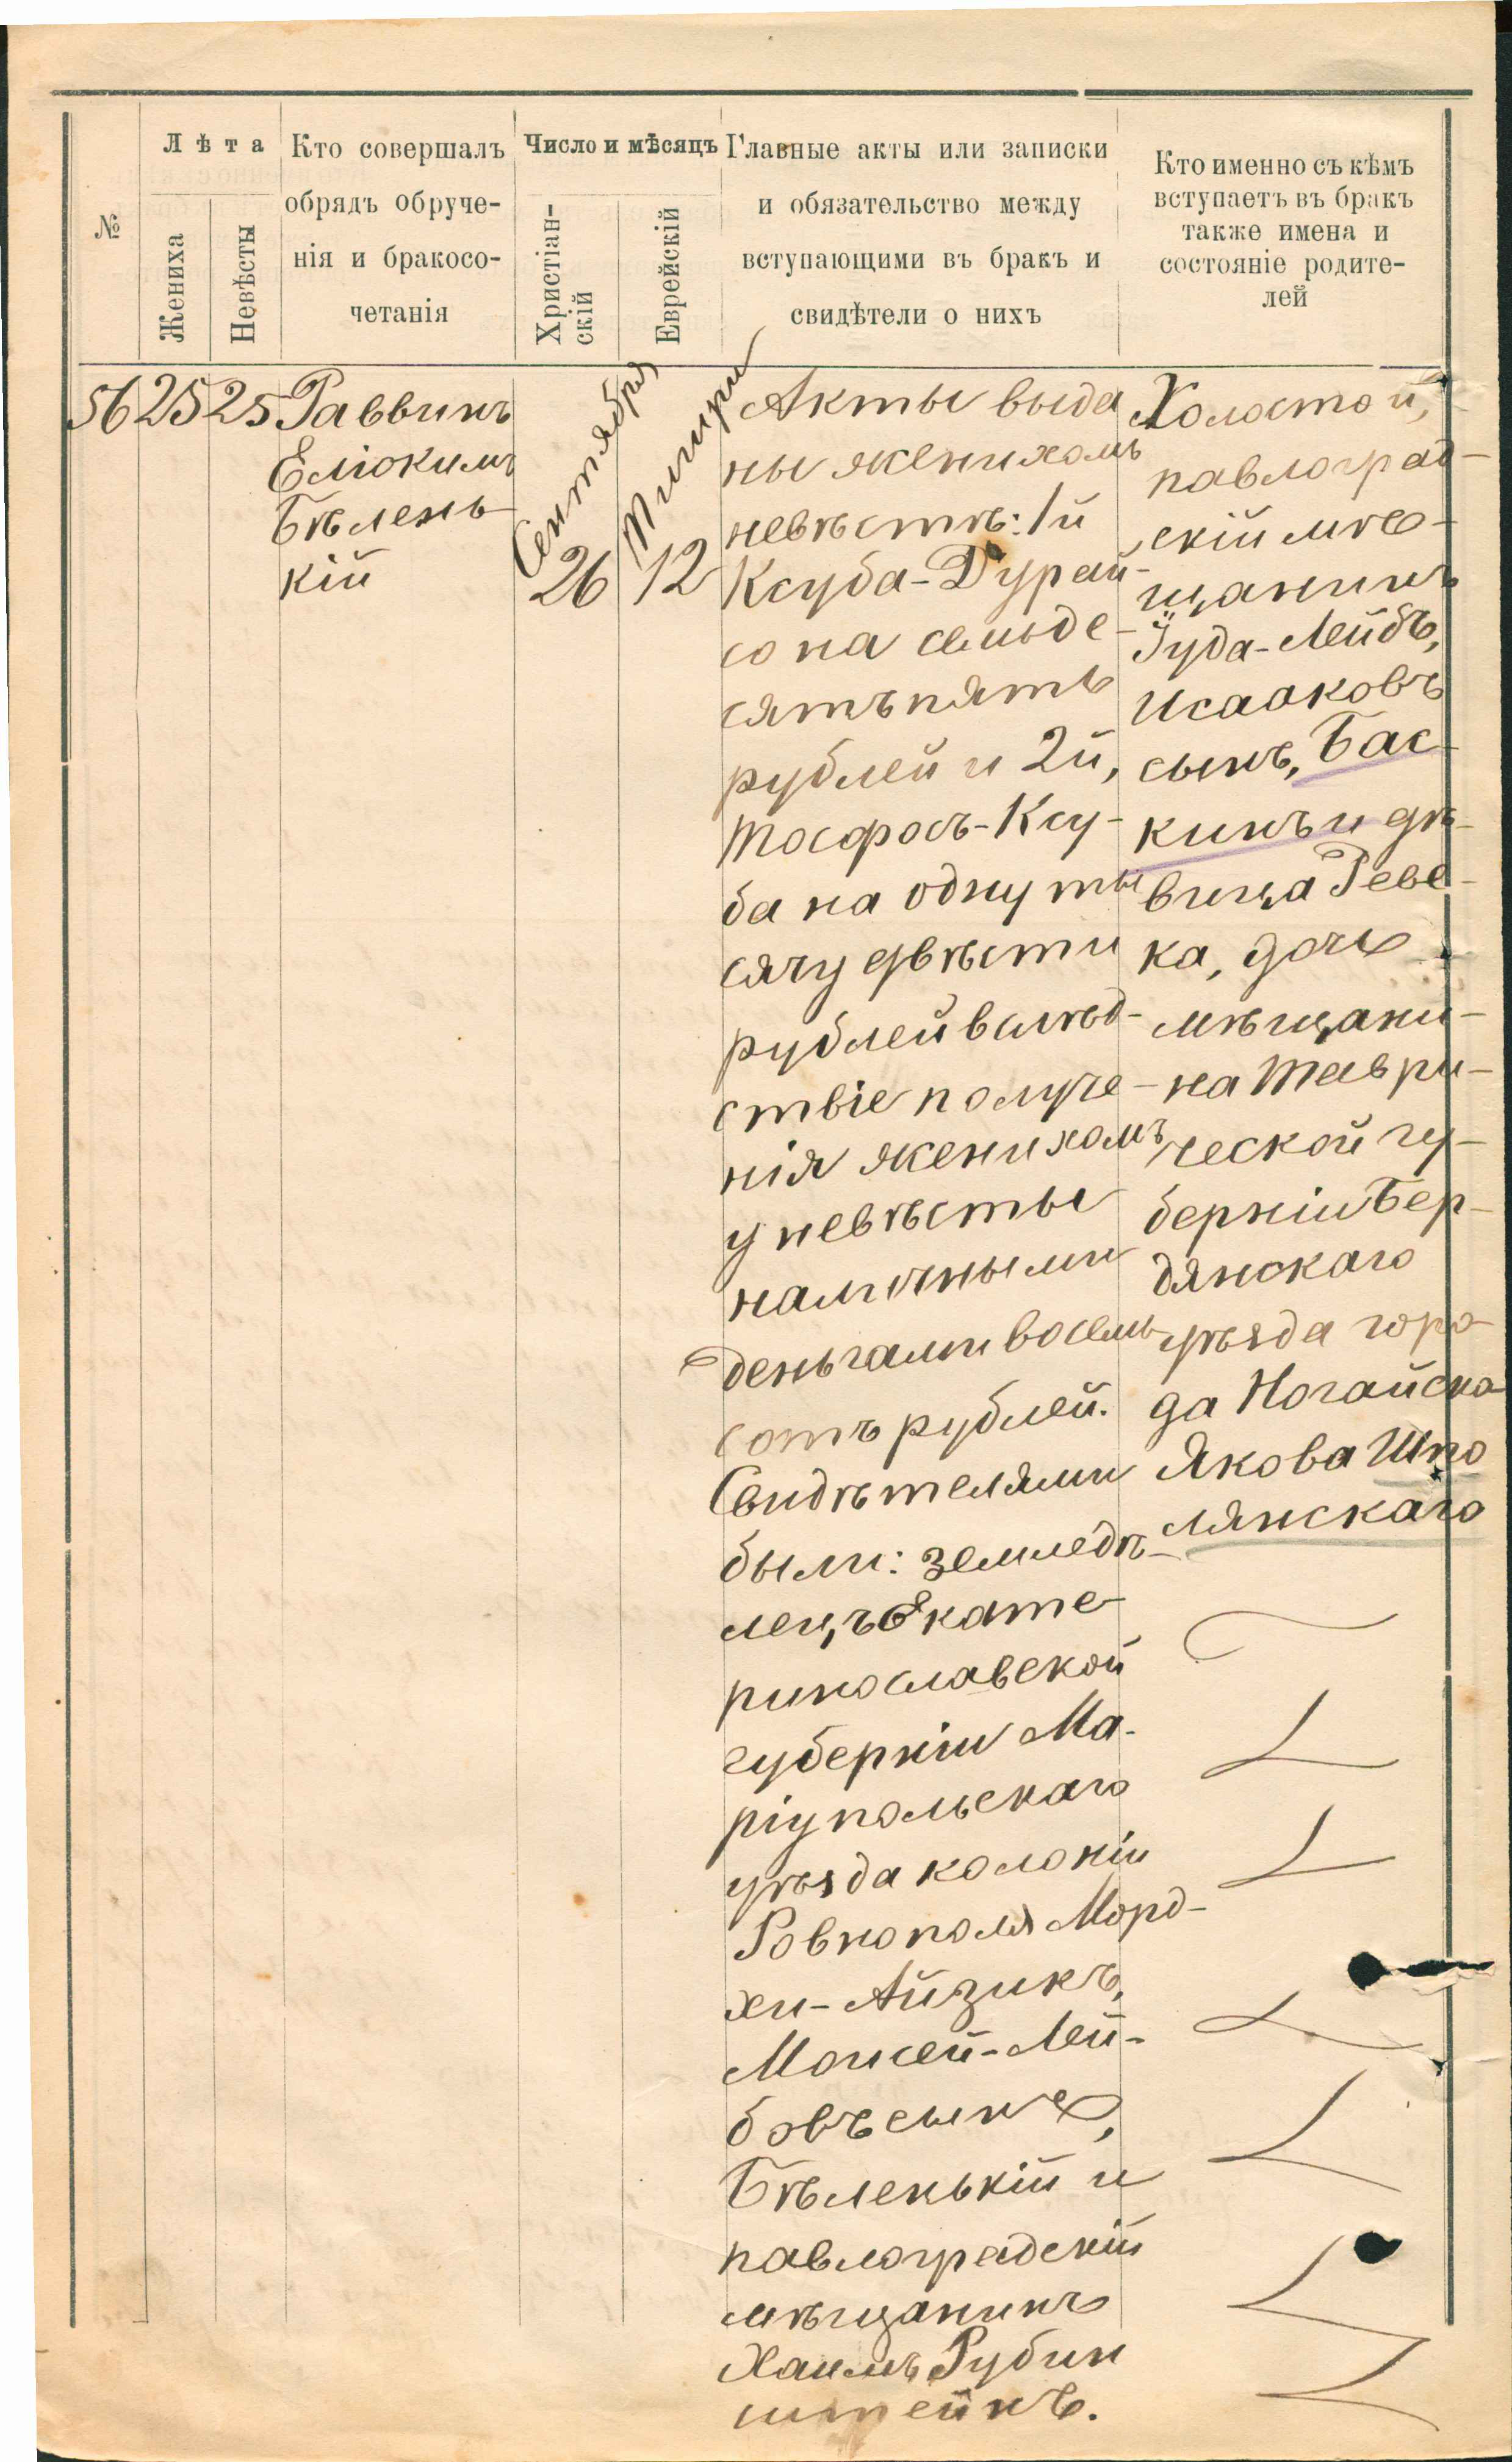 №
Лѣта
Жениха
Невѣсты
Кто совершалъ
обрядъ обруче-
нія и бракосо-
четанія
Число и мѣсяцъ
Христіан-
скій
Еврейскій
Главные акты или записки
и обязательство между
вступающими въ бракъ и
свидѣтели о нихъ
Кто именно съ кѣмъ
вступаетъ въ бракъ
также имена и
состояніе родите-
лей
56
25
25
Раввинъ
Еліокимъ
Бѣлень-
кій
Сентября
26
Тишри
12
Акты выда
ны женихомъ
невѣстѣ: 1й
Ксуба-Дурай-
со на семьде-
сятъ пять
рублей и 2й,
Тосфосъ-Ксу-
ба на одну ты
сячу двѣсти
рублей вслѣд-
ствіе получе-
нія женихомъ
у невѣсты
наличными
деньгами восемь
сотъ рублей.
Свидѣтелями
были: земледѣ-
лецъ Екате-
ринославской
губерніи Ма-
ріупольскаго
уѣзда колоніи
Ровнополя Морд-
хи-Айзикъ,
Моисей-Лей-
бовъ сынъ,
Бѣленькій и
павлоградскій
мѣщанинъ
Хаимъ Рубин
штейнъ.
Холостой,
павлоград-
скій мѣ-
щанинъ
Іуда-Лейбъ,
Исааковъ
сынъ, Бас-
кинъ и дѣ-
вица Реве-
ка, дочь
мѣщани-
на Таври-
ческой гу-
берніи Бер-
дянскаго
уѣзда горо-
да Ногайска
Якова Шпо
лянскаго